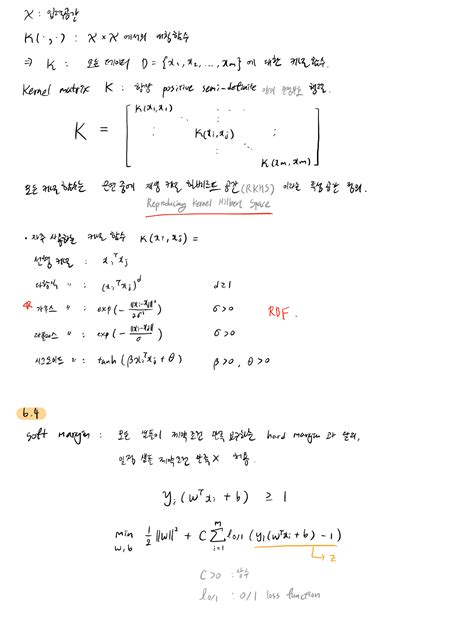 X : 입력공간
K(·,·) : X × X 에서의 대칭함수
⇒ K : 모든 데이터 D = {x₁, x₂, ..., xₘ} 에 대한 커널함수.
Kernel matrix K : 항상 positive semi-definite 행렬.
K(x₁,x₁)
K = [ ⋮ K(xᵢ,xⱼ) ⋮ ]
K(xₘ,xₘ)
모든 커널 함수는 은연중에 재생 커널 힐베르트 공간 (RKHS) 이라는 특성 공간 정의.
Reproducing Kernel Hilbert Space
· 자주 사용하는 커널 함수 K(xᵢ, xⱼ) =
선형 커널 : xᵢᵀxⱼ
다항식 〃 : (xᵢᵀxⱼ)ᵈ d≥1
가우스 〃 : exp(-||xᵢ-xⱼ||²/2σ²) σ>0 RBF.
라플라스 〃 : exp(-||xᵢ-xⱼ||/σ) σ>0
시그모이드 〃 : tanh(βxᵢᵀxⱼ + θ) β>0, θ>0
6.4
Soft Margin : 모든 샘플이 제약조건 만족 요구하는 hard margin 과 달리,
일정 샘플 제약조건 만족 X 허용.
yᵢ(wᵀxᵢ + b) ≥ 1
min w,b 1/2 ||w||² + C Σᵢ₌₁ᵐ l₀/₁ (yᵢ(wᵀxᵢ + b) - 1)
→ z
C>0 : 상수
l₀/₁ : 0/1 loss function